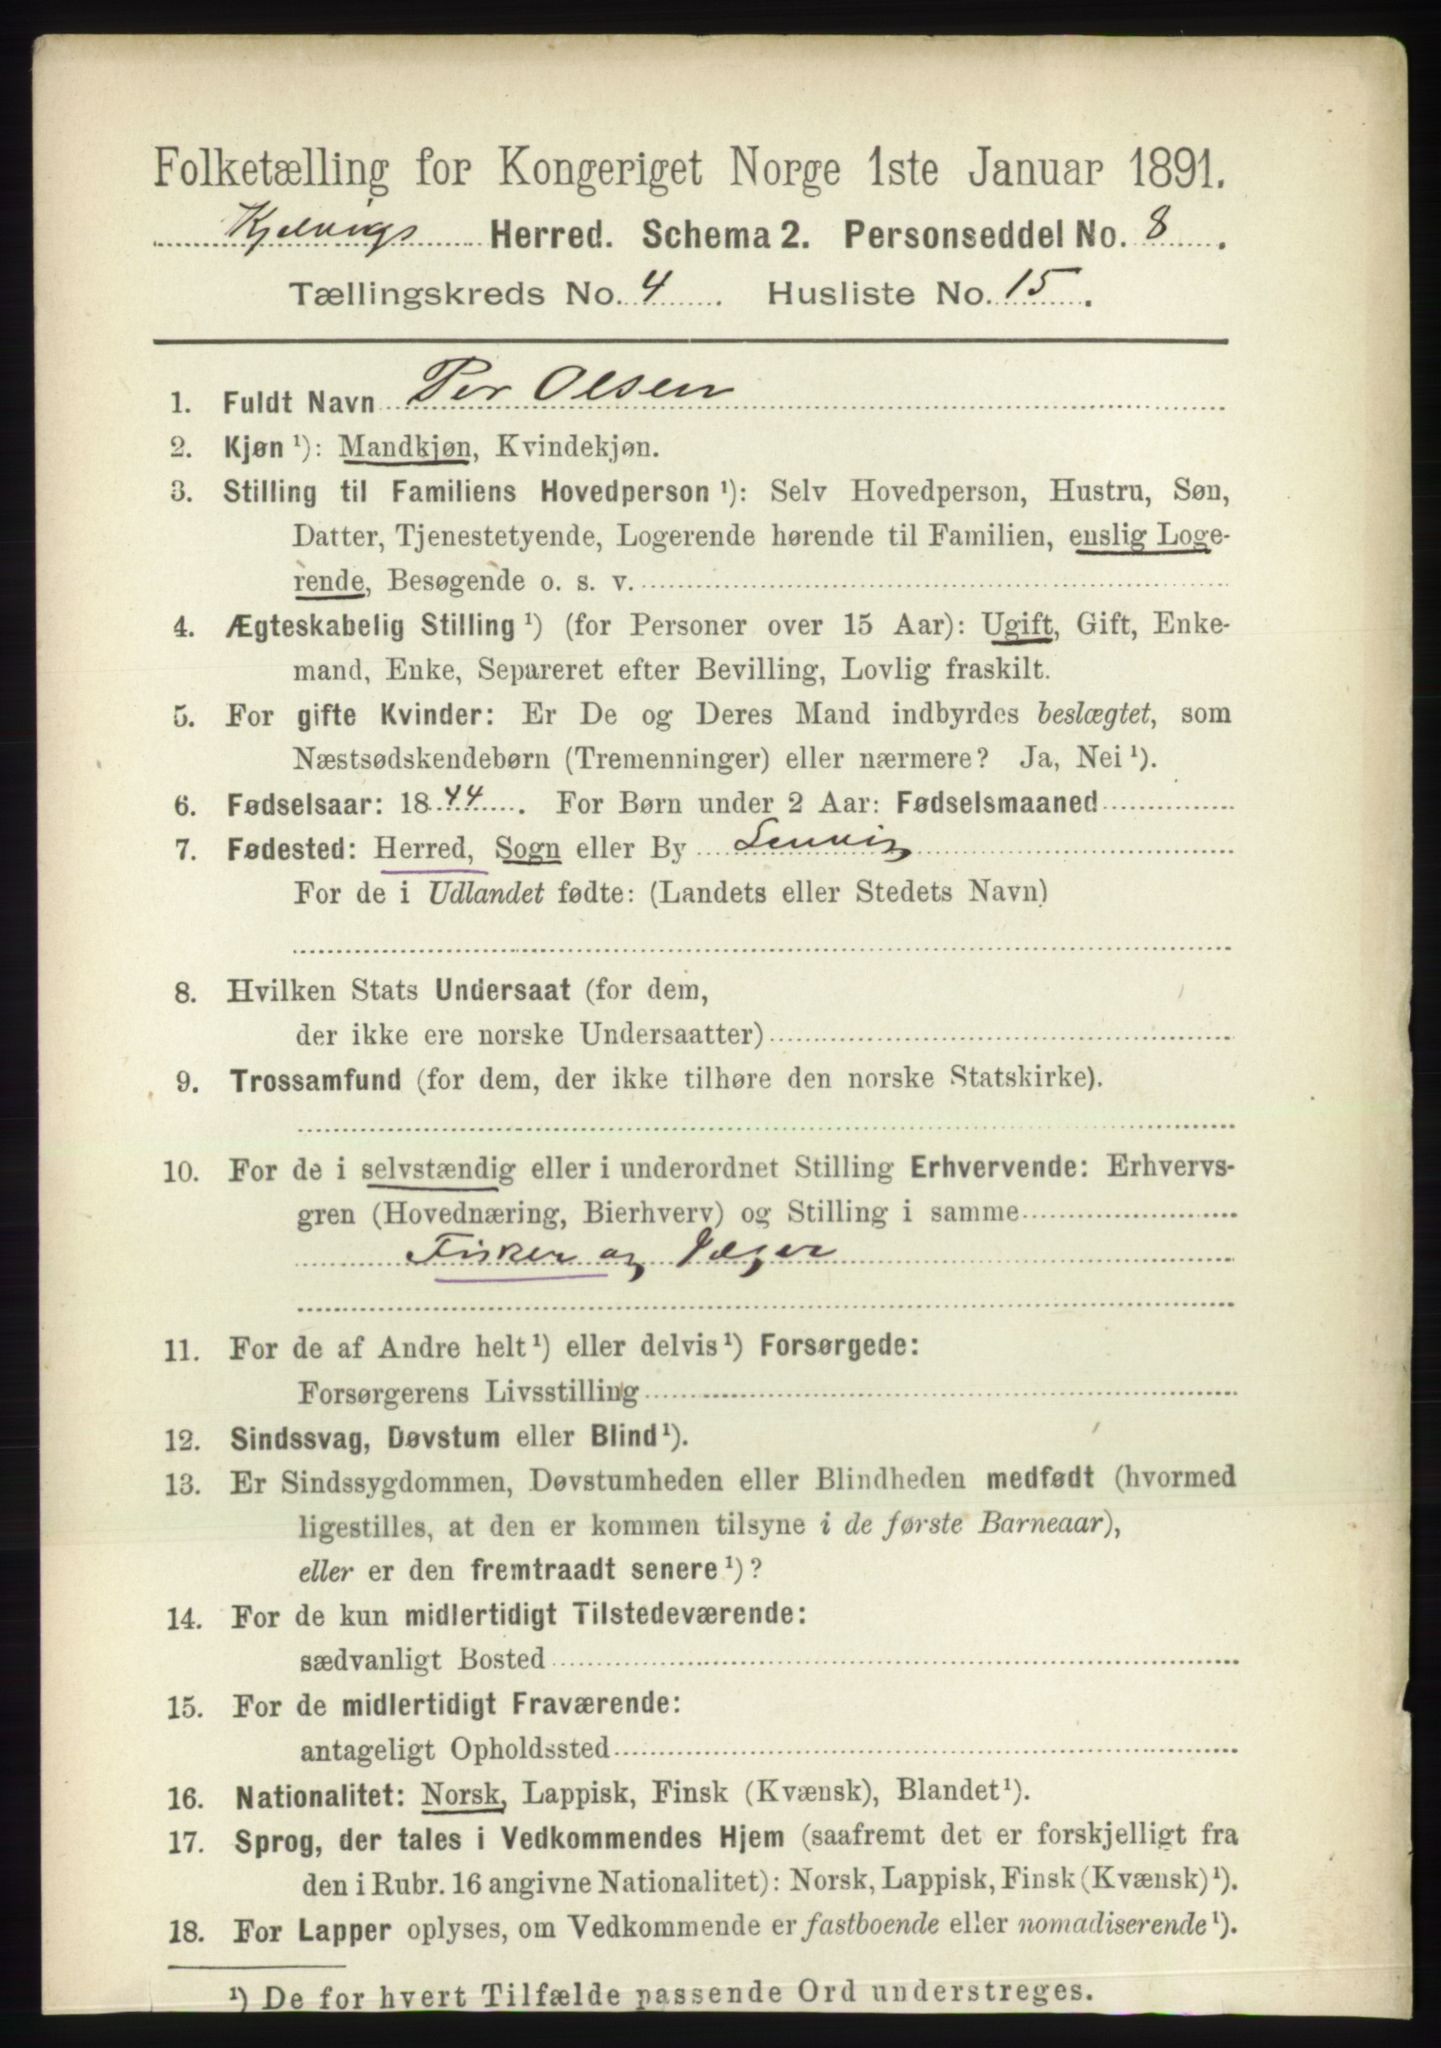 Folketælling for Kongeriget Norge 1ste Januar 1891.
Kjelvigs Herred. Schema 2. Personseddel No. 8.
Tællingskreds No. 4. Husliste No. 15.
1. Fuldt Navn Per Olsen
2. Kjøn ¹): Mandkjøn, Kvindekjøn.
3. Stilling til Familiens Hovedperson ¹): Selv Hovedperson, Hustru, Søn,
Datter, Tjenestetyende, Logerende hørende til Familien, enslig Loge-
rende, Besøgende o. s. v.
4. Ægteskabelig Stilling ¹) (for Personer over 15 Aar): Ugift, Gift, Enke-
mand, Enke, Separeret efter Bevilling, Lovlig fraskilt.
5. For gifte Kvinder: Er De og Deres Mand indbyrdes beslægtet, som
Næstsødskendebørn (Tremenninger) eller nærmere? Ja, Nei ¹).
6. Fødselsaar: 1844. For Børn under 2 Aar: Fødselsmaaned
7. Fødested: Herred, Sogn eller By Lenvig
For de i Udlandet fødte: (Landets eller Stedets Navn)
8. Hvilken Stats Undersaat (for dem,
der ikke ere norske Undersaatter)
9. Trossamfund (for dem, der ikke tilhøre den norske Statskirke).
10. For de i selvstændig eller i underordnet Stilling Erhvervende: Erhvervs-
gren (Hovednæring, Bierhverv) og Stilling i samme
Fisker og Jæger
11. For de af Andre helt ¹) eller delvis ¹) Forsørgede:
Forsørgerens Livsstilling
12. Sindssvag, Døvstum eller Blind ¹).
13. Er Sindssygdommen, Døvstumheden eller Blindheden medfødt (hvormed
ligestilles, at den er kommen tilsyne i de første Barneaar),
eller er den fremtraadt senere ¹)?
14. For de kun midlertidigt Tilstedeværende:
sædvanligt Bosted
15. For de midlertidigt Fraværende:
antageligt Opholdssted
16. Nationalitet: Norsk, Lappisk, Finsk (Kvænsk), Blandet ¹).
17. Sprog, der tales i Vedkommendes Hjem (saafremt det er forskjelligt fra
den i Rubr. 16 angivne Nationalitet): Norsk, Lappisk, Finsk (Kvænsk) ¹).
18. For Lapper oplyses, om Vedkommende er fastboende eller nomadiserende ¹).
¹) De for hvert Tilfælde passende Ord understreges.